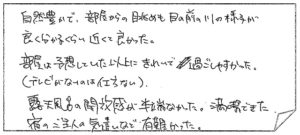 自然豊かで、部屋からの眺めも目の前の川の様子が
良くわかるくらい近くて良かった。
部屋は予想していた以上にきれいで過ごしやすかった。
(テレビがないのは仕方ない)
露天風呂の開放感が半端なかった。満喫できた
宿のご主人の気遣いなど有難かった。